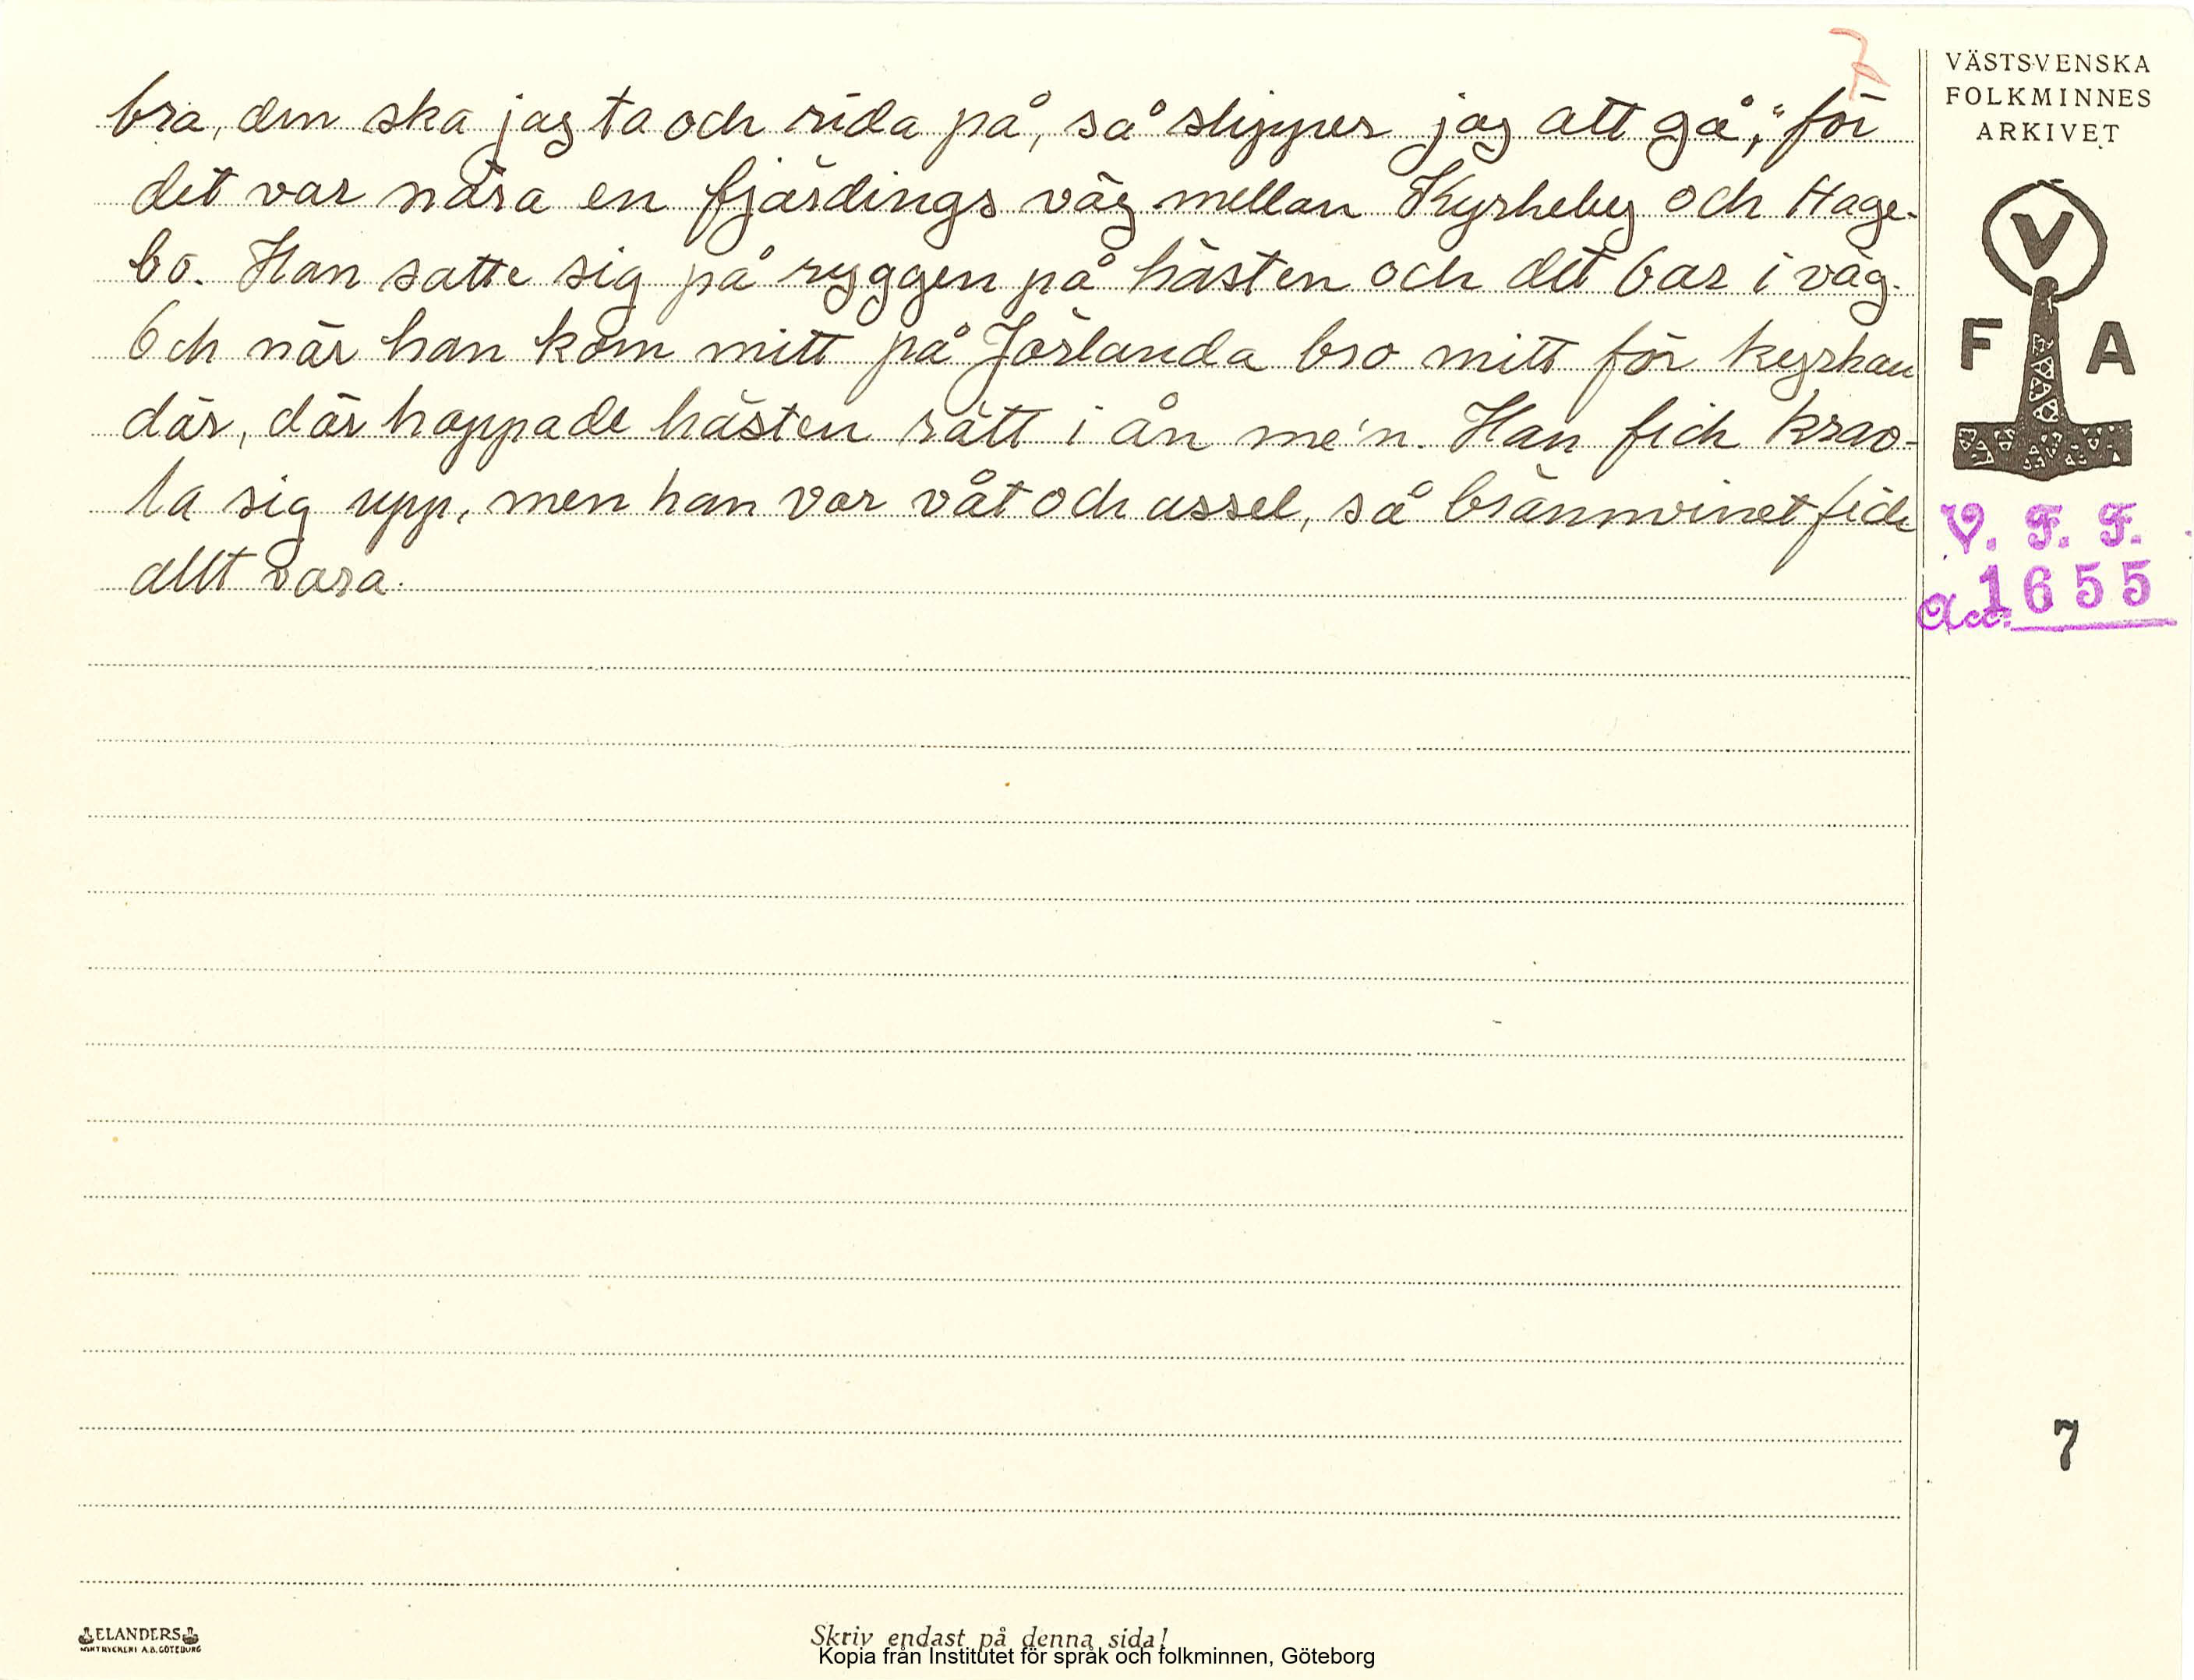 7
bra, den ska jag ta och rida på, så slipper jag att gå," för
det var nära en fjärdings väg mellan Kyrkeby och Hage-
bo. Han satte sig på ryggen på hästen och det bar i väg.
Och när han kom mitt på Jörlanda bro mitt för kyrkan
där, där hoppade hästen rätt i ån me'n. Han fick krav-
la sig upp, men han var våt och ussel, så brännvinet fick
allt vara.
VÄSTSVENSKA
FOLKMINNES
ARKIVET
V
F A
V. F. F.
Acc. 1655
7
ELANDERS
Skriv endast på denna sida!
Kopia från Institutet för språk och folkminnen, Göteborg